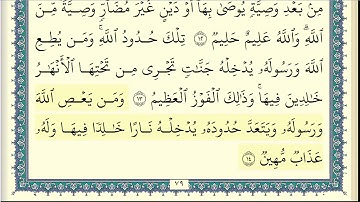 مِنۢ بَعْدِ وَصِيَّةٍ يُوصَىٰ بِهَآ أَوْ دَيْنٍ غَيْرَ مُضَآرٍّ وَصِيَّةً مِّنَ
ٱللَّهِ وَٱللَّهُ عَلِيمٌ حَلِيمٌ ١٢ تِلْكَ حُدُودُ ٱللَّهِ وَمَن يُطِعِ
ٱللَّهَ وَرَسُولَهُۥ يُدْخِلْهُ جَنَّٰتٍ تَجْرِى مِن تَحْتِهَا ٱلْأَنْهَٰرُ
خَٰلِدِينَ فِيهَا وَذَٰلِكَ ٱلْفَوْزُ ٱلْعَظِيمُ ١٣ وَمَن يَعْصِ ٱللَّهَ
وَرَسُولَهُۥ وَيَتَعَدَّ حُدُودَهُۥ يُدْخِلْهُ نَارًا خَٰلِدًا فِيهَا وَلَهُۥ
عَذَابٌ مُّهِينٌ ١٤
٧٩